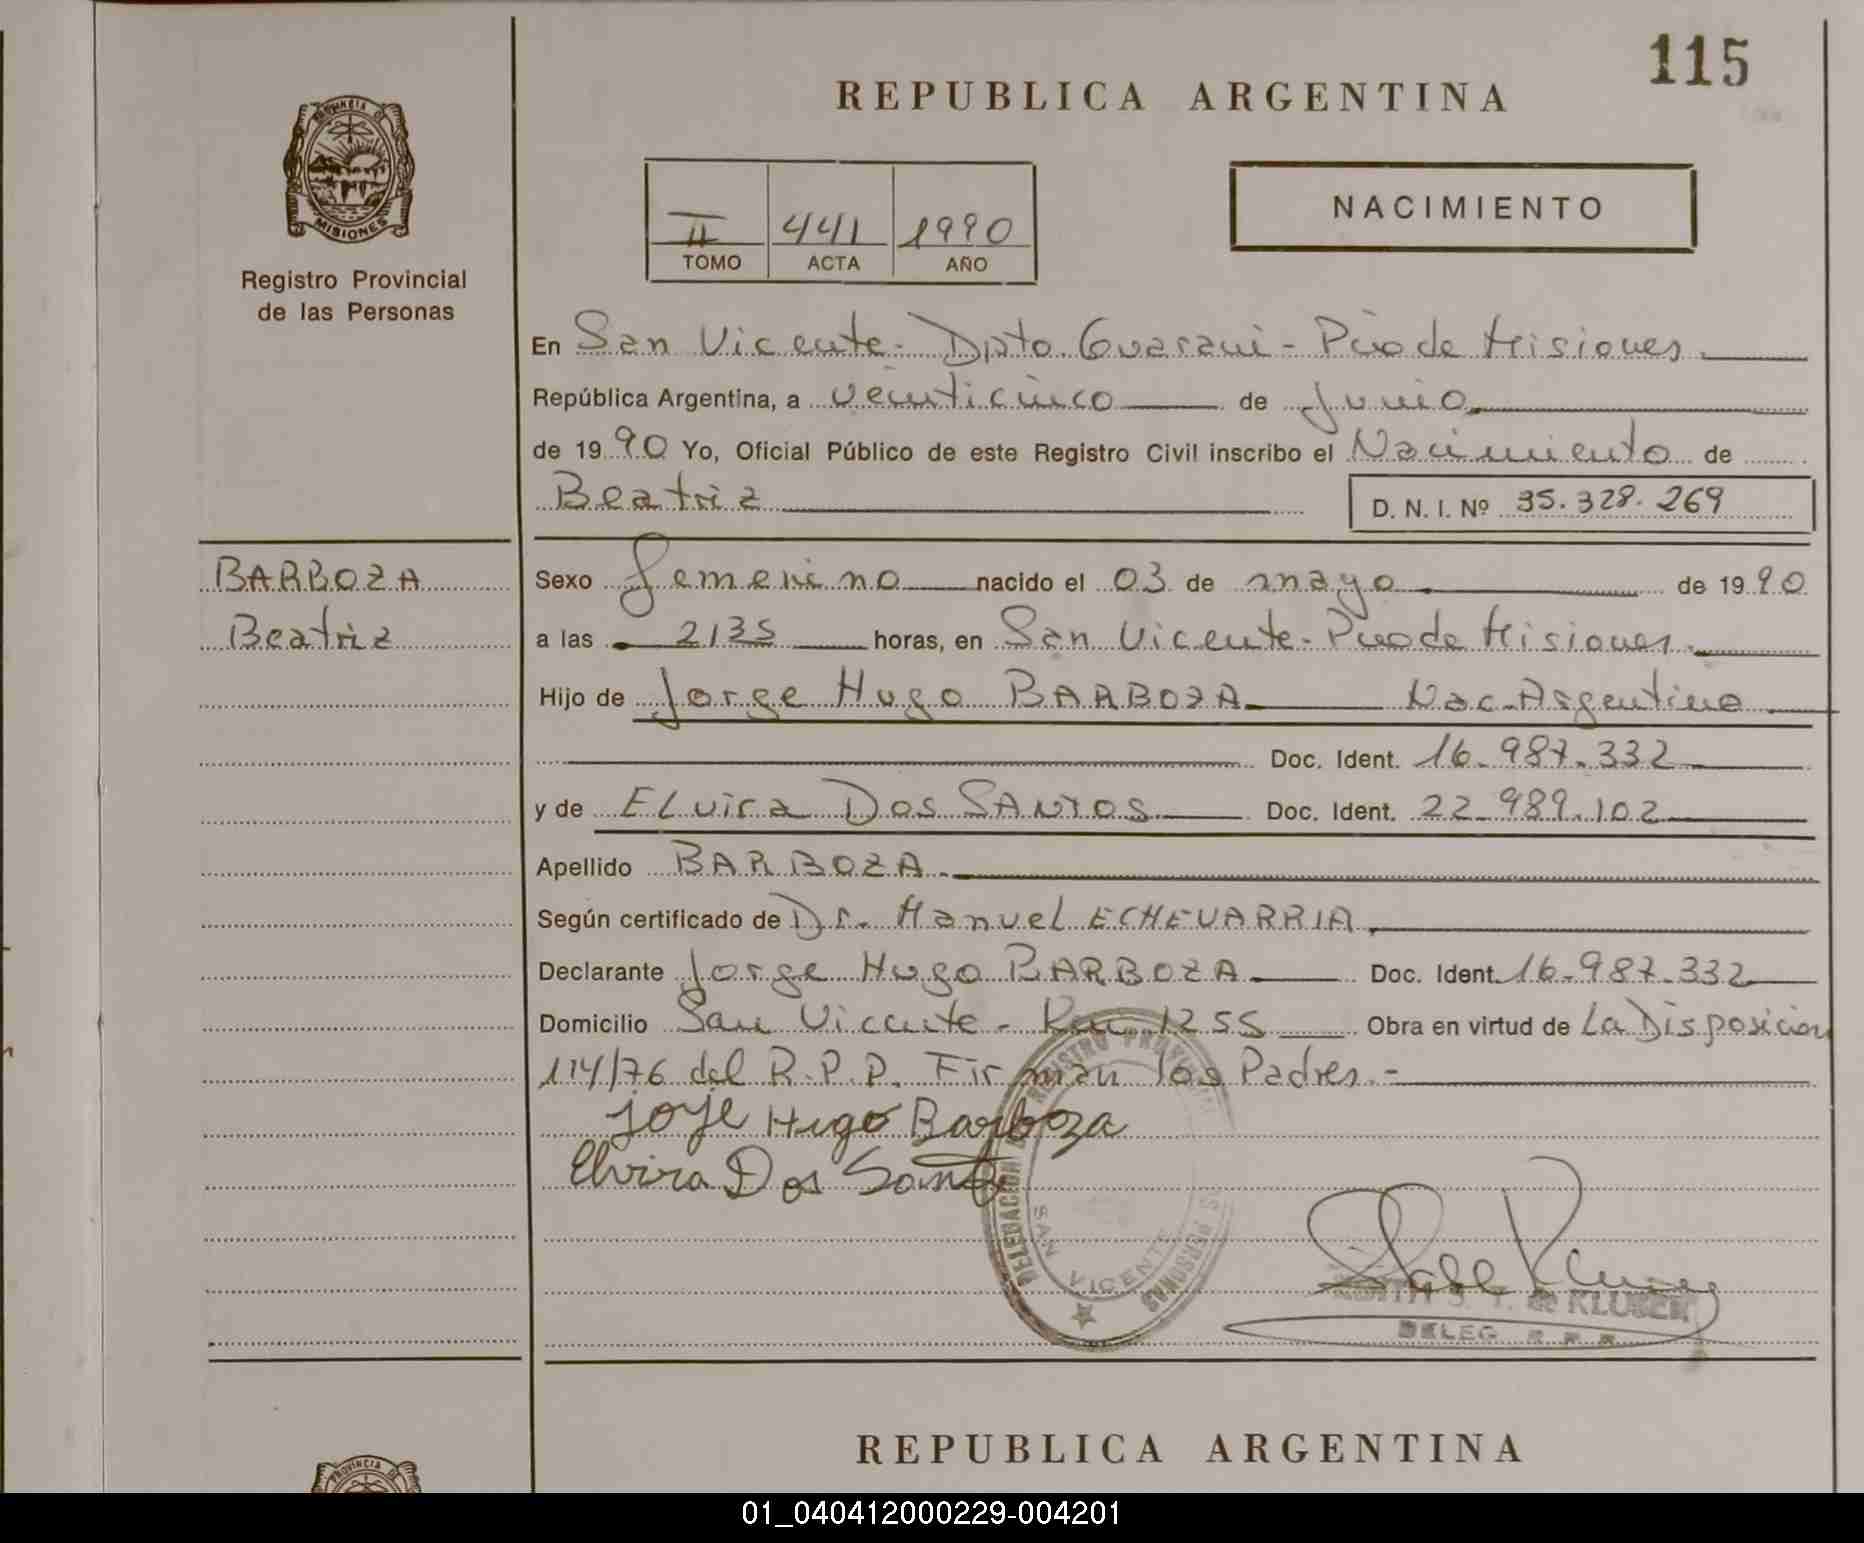 115
REPUBLICA ARGENTINA
PROVINCIA DE
MISIONES
Registro Provincial
de las Personas
II 441 1990
TOMO ACTA AÑO
NACIMIENTO
En San Vicente - Dpto. Guarani - Pcia de Misiones.
República Argentina, a veinticinco de Junio
de 1990 Yo, Oficial Público de este Registro Civil inscribo el Nacimiento de
Beatriz D. N. I. Nº 35.328.269
BARBOZA
Beatriz
Sexo femenino nacido el 03 de mayo de 1990
a las 2135 horas, en San Vicente - Pcia de Misiones.
Hijo de Jorge Hugo BARBOZA Nac. Argentino
Doc. Ident. 16.987.332
y de ELvira Dos SANTOS Doc. Ident. 22.989.102
Apellido BARBOZA.
Según certificado de Dr. Manuel ECHEVARRIA
Declarante Jorge Hugo BARBOZA Doc. Ident. 16.987.332
Domicilio San Vicente - Km 1255 Obra en virtud de La Disposicion
114/76 del R.P.P. Firman los Padres.-
Jorje Hugo Barboza
Elvira Dos Santos
DELEGACION REGISTRO PROVINCIAL
PERSONAS
SAN VICENTE
S. T. de KLUSEN
DELEG. R. P. P.
REPUBLICA ARGENTINA
PROVINCIA DE
01_040412000229-004201